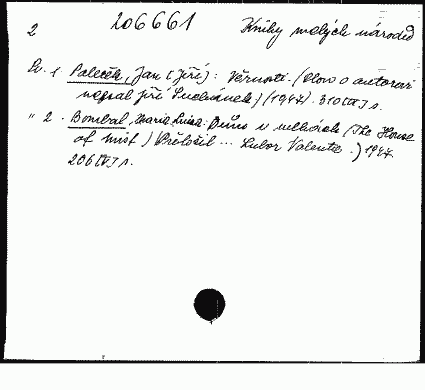 2 206661 Knihy malých národů
Sv. 1 Paleček, Jan (Jiří): Věrnost. (Slovo o autorovi
napsal Jiří Suchánek) (1947). 310 [V] s.
" 2. Bombal, Maria Luisa: Dům v mlhách (The House
of Mist) Přeložil ... Lubor Valenta.) 1947.
206 [V] s.